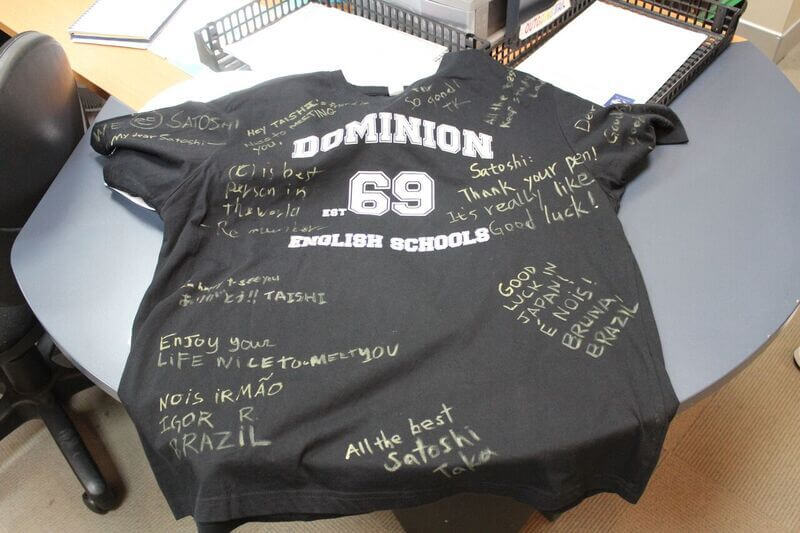 WE SATOSHI
My dear Satoshi
Hey TAISHI
Nice to MEETING
YOU!
So good!!
TK
All the Best
DOMINION
EST 69
ENGLISH SCHOOLS
is best
person in
the world
Satoshi:
Thank your pen!
It's really like
Good luck!
to see you
ありがとう!! TAISHI
GOOD
LUCK IN
JAPAN!
É NOIS!
BRUNA,
BRAZIL
Enjoy your
LIFE NICE TO MEET YOU
NOIS IRMÃO
IGOR R.
BRAZIL
All the best
Satoshi
Taka